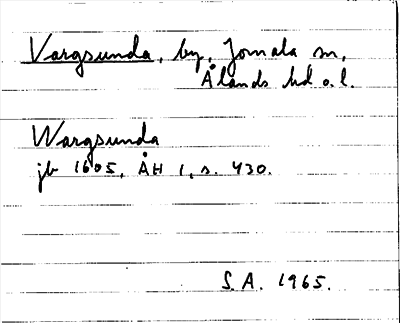 Vargsunda, by, Jomala sn,
Ålands hd o. l.
Wargsunda
jb 1605, ÅH 1, s. 430.
S.A. 1965.